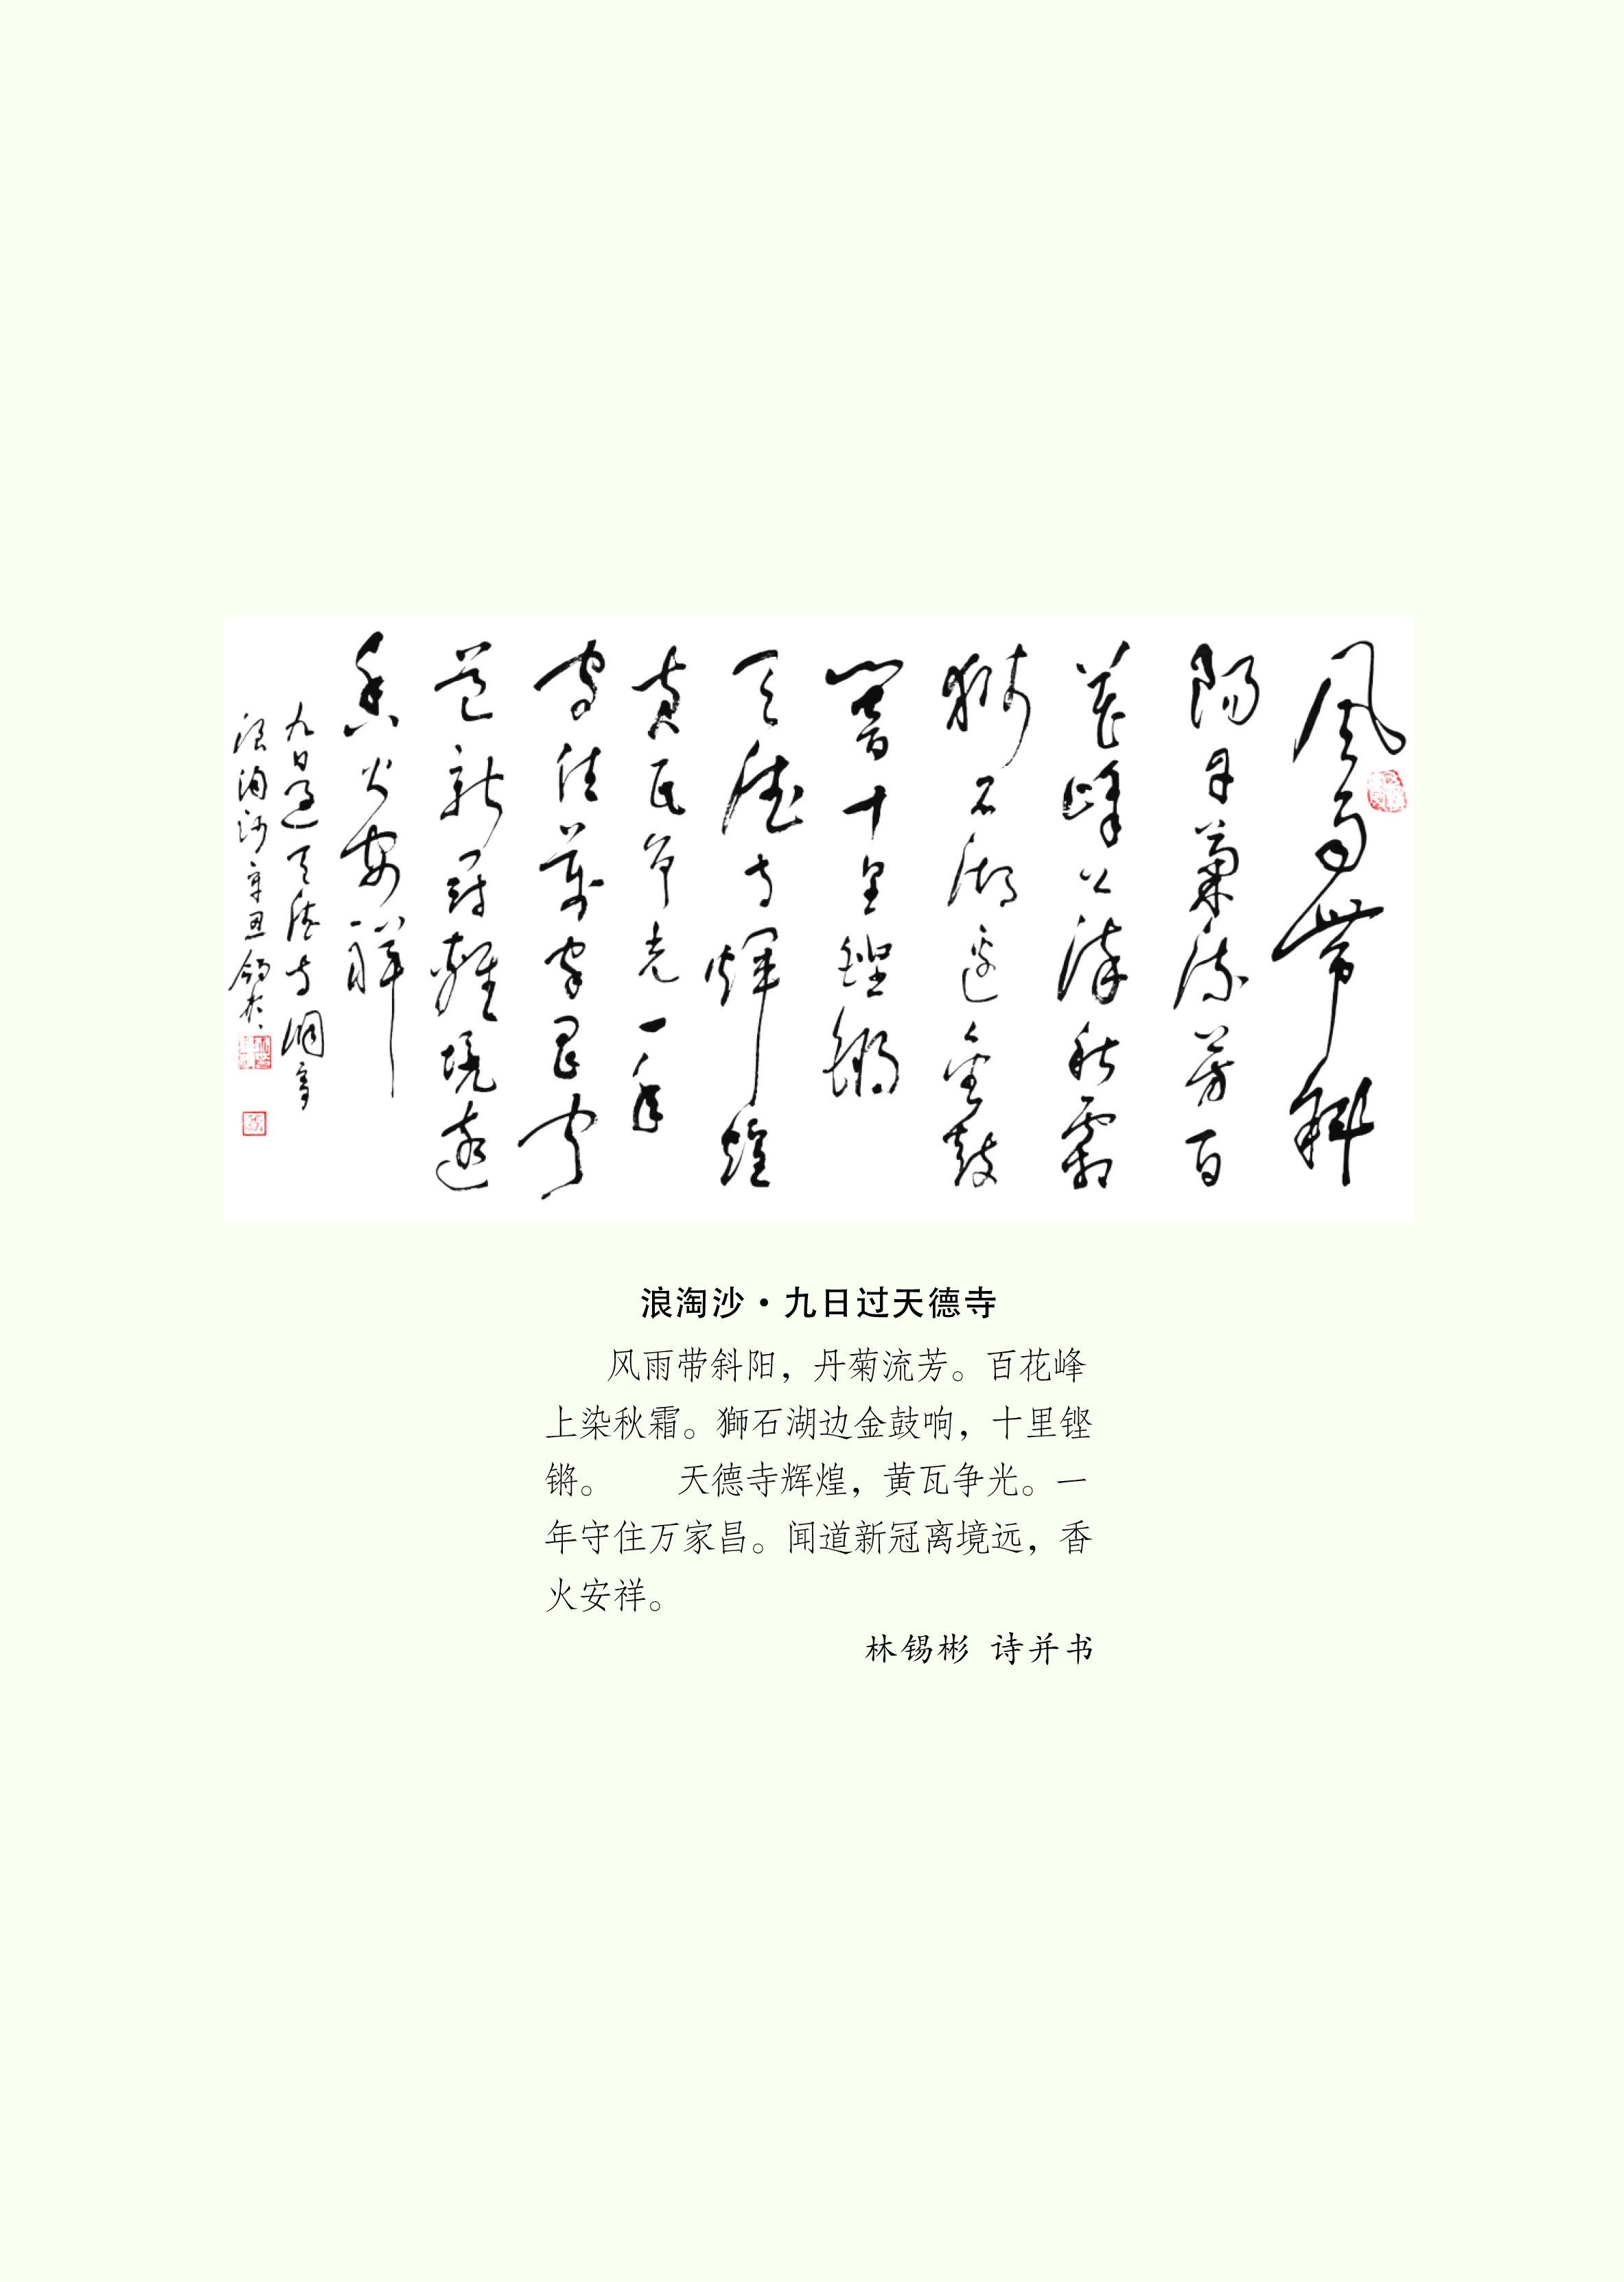 风雨带斜
陽丹菊流芳百
花峰上染秋霜
狮石湖边金鼓
響十里铿锵
天德寺輝煌
黄瓦争光一年
守住萬家昌闻
道新冠離境远
香火安祥
九日過天德寺調寄
浪淘沙辛丑锡彬
浪淘沙·九日过天德寺
风雨带斜阳，丹菊流芳。百花峰
上染秋霜。獅石湖边金鼓响，十里铿
锵。　　天德寺辉煌，黄瓦争光。一
年守住万家昌。闻道新冠离境远，香
火安祥。
林锡彬 诗并书